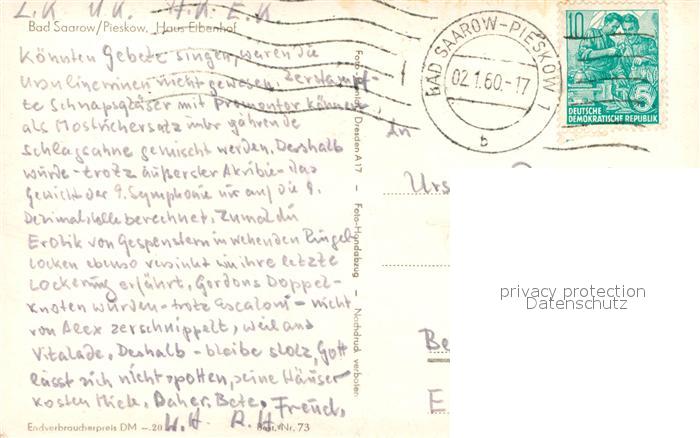 L.K U.K. H.K. E.K
Bad Saarow/Pieskow. Haus Eibenhof
Könnten Gebete singen, wären die
Ursulinerinnen nicht gewesen. Zerstampf-
te Schnapsgläser mit können
als Mostrichersatz gährende
Schlagsahne gemischt werden. Deshalb
würde - trotz äußerster Akribie - das
Gewicht der 9. Symphonie nur auf die 9.
Dezimalstelle berechnet. Zumal die
Erotik von Gespenstern in wehenden Ringel-
locken ebenso versinkt wie ihre letzte
Lockerung erfährt. Gordons Doppel-
knoten würden - trotz - nicht
von Alex zerschnippelt, weil
Deshalb - bleibe stolz, Gott
lässt sich nicht spotten, seine Häuser
kosten Miete. Daher. Bete, Freud.
H.H. R.H
Endverbraucherpreis DM -.20
Nr. 73
Dresden A 17 — Foto-Handabzug — Nachdruck verboten
BAD SAAROW-PIESKOW 1
02.1.60.-17
b
10
5
DEUTSCHE
DEMOKRATISCHE REPUBLIK
An
Urs
Be
E
privacy protection
Datenschutz